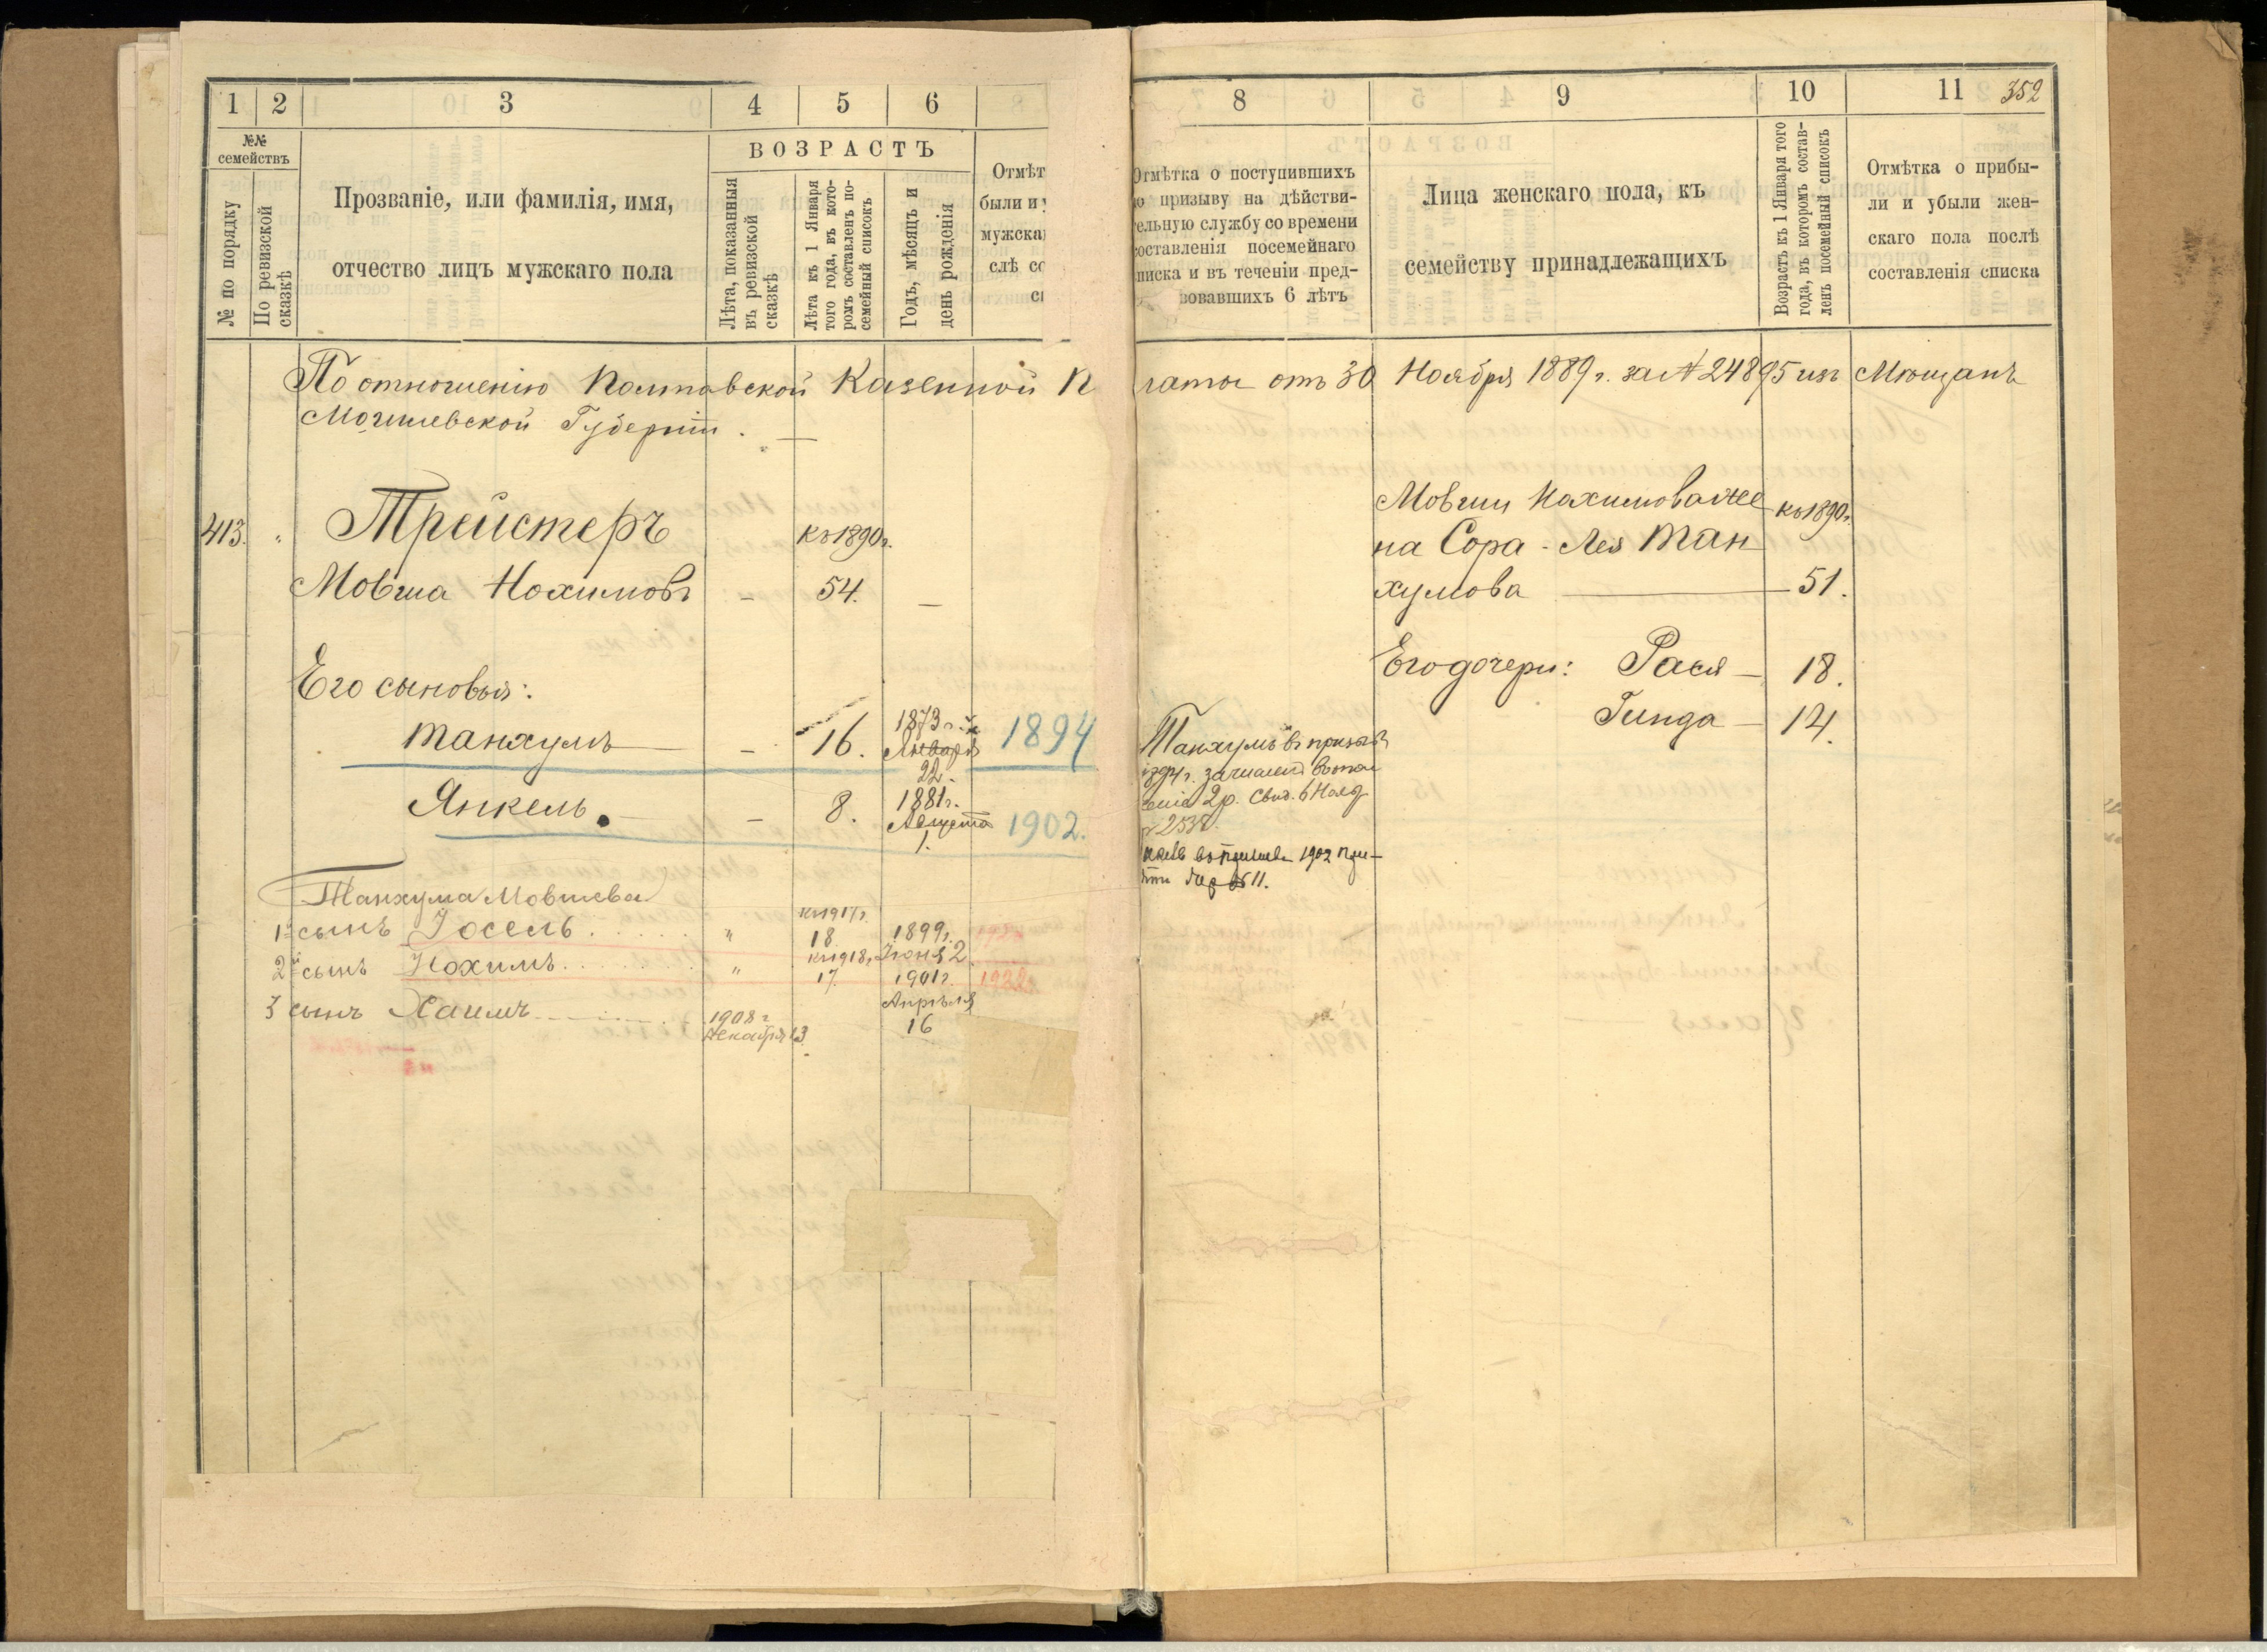 1 2 3 4 5 6
№№ семействъ
№ по порядку
По ревизской сказкѣ
Прозваніе, или фамилія, имя,
отчество лицъ мужскаго пола
ВОЗРАСТЪ
Лѣта, показанныя
въ ревизской
сказкѣ
Лѣта къ 1 Января
того года, въ кото-
ромъ составленъ по-
семейный списокъ
Годъ, мѣсяцъ и
день рожденія
Отмѣт
были и у
мужска
слѣ со
сп
По отношенію Полтавской Казенной П
Могилевской Губерніи.
413. Трейстеръ къ 1890 г.
Мовша Нохимовъ - 54. -
Его сыновья:
Танхумъ - 16. 1873 г. Января 22. 1894
Янкель. - 8. 1881 г. Августа 1. 1902.
Танхума Мовшева
къ 1917 г.
1й сынъ Іосель " 18 1899 г. Іюня 2
къ 1918 г.
2й сынъ Нохимъ " 17. 1901 г. Апрѣля 16 1922
3 сынъ Хаимъ 1908 г. Декабря 13.
8 9 10 11 352
Отмѣтка о поступившихъ
по призыву на дѣйстви-
тельную службу со времени
составленія посемейнаго
списка и въ теченіи пред-
вовавшихъ 6 лѣтъ
Лица женскаго пола, къ
семейству принадлежащихъ
Возрастъ къ 1 Января того
года, въ которомъ состав-
ленъ посемейный списокъ
Отмѣтка о прибы-
ли и убыли жен-
скаго пола послѣ
составленія списка
латы отъ 30 Ноября 1889 г. за № 24895 изъ Мѣщанъ
Мовши Нохимова же къ 1890 г.
на Сора-Лея Тан
хумова 51.
Его дочери: Рася - 18.
Гинда - 14.
Танхумъ въ призывъ
1894 г. зачисленъ въ опол
ченіе 2 р. Свид. 6 Нояб
№ 2538.
1902
№ 11.